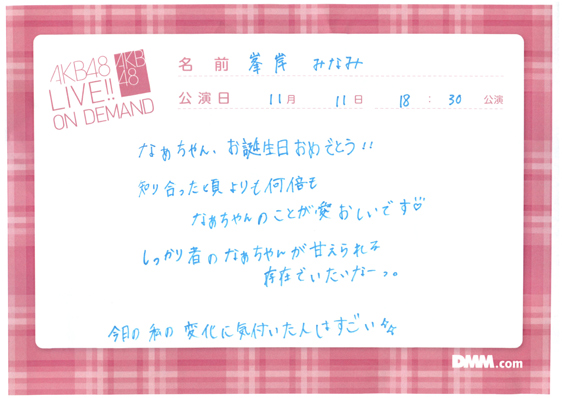 AKB48
LIVE!!
ON DEMAND
AKB
48
名 前 峯岸 みなみ
公演日 11月 11日 18 : 30 公演
なぁちゃん、お誕生日おめでとう!!
知り合った頃よりも何倍も
なぁちゃんのことが愛おしいです♡
しっかり者のなぁちゃんが甘えられる
存在でいたいなーっ。
今日の私の変化に気付いた人はすごい☆☆
DMM.com